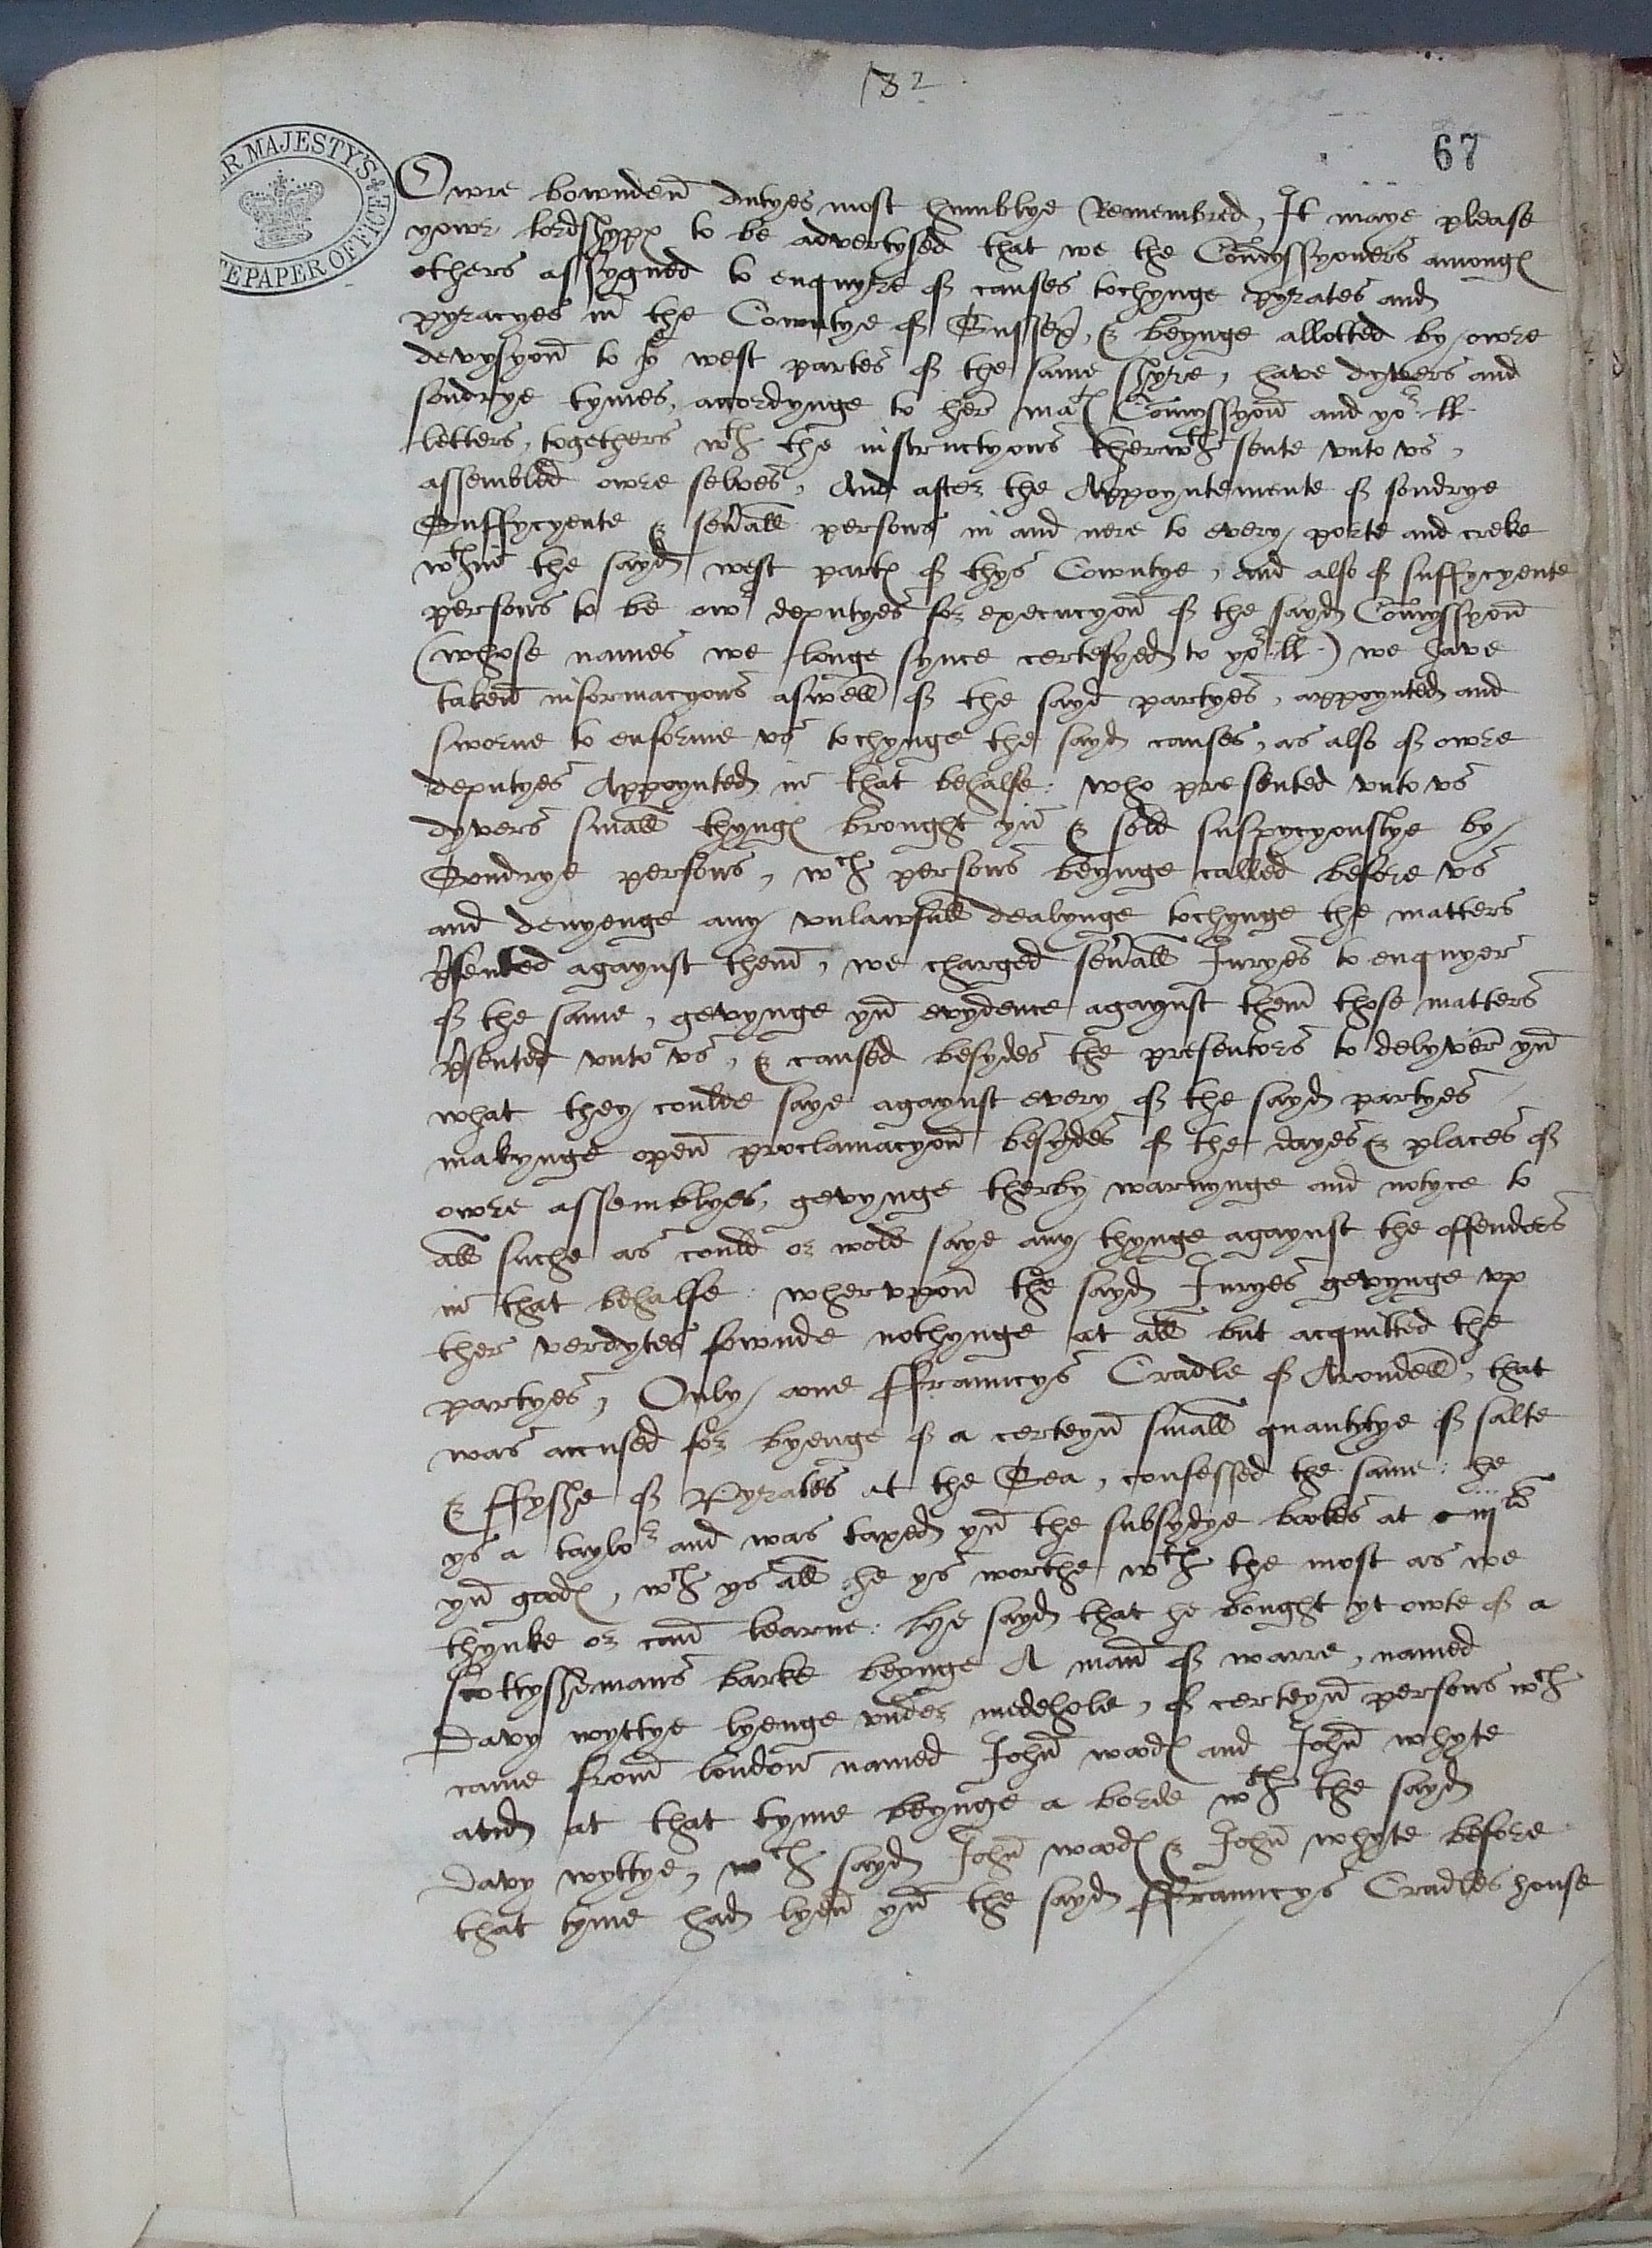 182
67
R MAJESTY'S
TE PAPER OFFICE
Owre bownden dutyes most humblye Remembred, It maye please
yowr lordshypps to be advertysed that we the Comyssyoners amongs
others assygned to enquyre of causes tochynge pyrates and
pyracyes in the Cowntye of Sussex, & beynge allotted by owre
devysyon to ye west partes of the same shyre, have dyvers and
sondrye tymes, accordynge to her mats Comyssyon and yor ll
letters, togethers wth the instructyons therwth sente unto us,
assembled owre selves, And after the Appoyntemente of sondrye
Suffycyente & sevall persons in and nere to every porte and creke
wthin the sayd west parts of thys Cowntye, and also of suffycyente
persons to be owr deputyes for execucyon of the sayd Comyssyon
(whose names we longe synce certefyed to yor ll) we have
taken informacyons aswell of the sayd partyes, appoynted and
sworne to enforme us tochynge the sayd causes, as also of owre
deputyes Appoynted in that behalfe: who presented unto us
dyvers small thyngs brought yn & sold suspycyouslye by
Sondrye persons, wch persons beynge called before us
and denyenge any unlawfull dealynge tochynge the matters
psented agaynst them, we charged sevall Juryes to enquyer
of the same, gevynge yn evydence agaynst them those matters
psented unto us, & caused besydes the presentors to delyver yn
what they coulde saye agaynst every of the sayd partyes
makynge open proclamacyon besydes of the dayes & places of
owre assemblyes, gevynge therby warnynge and notyce to
all suche as could or wold saye any thynge agaynst the offendors
in that behalfe: wheruppon the sayd Juryes gevynge up
ther verdytes fownde nothynge at all but acquitted the
partyes, Only one ffrauncys Cradle of Arondell, that
was accused for byenge of a certeyn small quantytye of salte
& ffyshe of Pyrates at the Sea, confessed the same: he
ys a taylor and was taxed yn the subsydye bookes at iiili
yn goods, wch ys all he ys worthe wth the most as we
thynke or can learne: he sayd that he bought yt owte of a
scottyshemans barke beynge A man of warre, named
Davy wyttye lyenge under medehole, of certeyn persons wch
came from london named John woods and John whyte
and at that tyme beynge a borde wth the sayd
Davy wyttye, wch sayd John woods & John whyte before
that tyme had lyen yn the sayd ffrauncys Cradles house